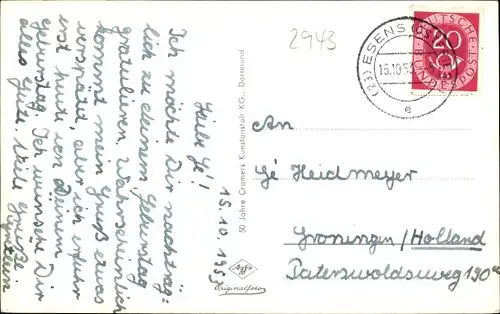 15.10.1953
Liebe Gé!
Ich möchte Dir nachträg-
lich zu deinem Geburtstag
gratulieren. Wahrscheinlich
kommt mein Gruß etwas
verspätet, aber ich erfuhr
erst heute von Deinem
Geburtstag. Ich wünsche Dir
alles Gute. Viele Grüße
2943
(23) ESENS (OSTFR)
15.10.53
e
DEUTSCHE
BUNDESPOST
20
50 Jahre Cramers Kunstanstalt KG., Dortmund
Agfa
Originalfoto
An
Gé Heidmeyer
Groningen/Holland
Paterswoldseweg 190